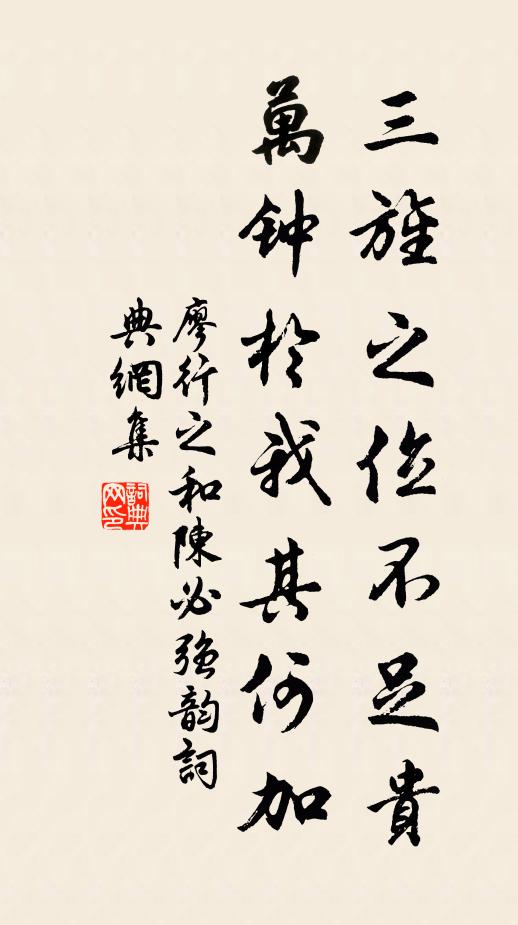 三旌之位不足貴
萬钟於我其何加
廖行之和陳必强韵詞
典網集
詞典网印